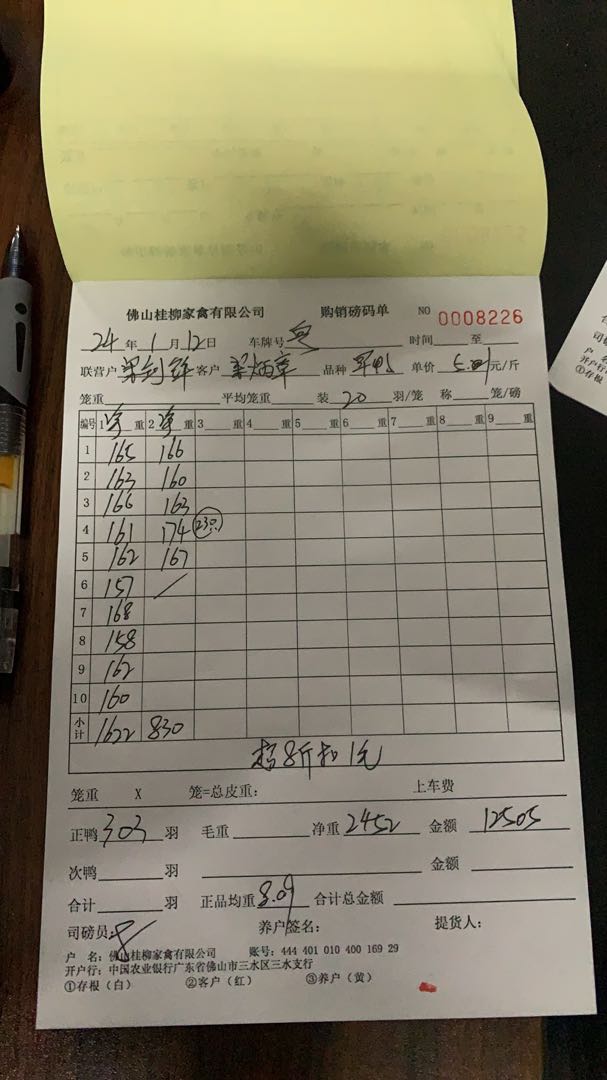 佛山桂柳家禽有限公司 购销磅码单 NO 0008226
24 年 1 月 12 日 车牌号 时间 至
联营户 客户 梁炳章 品种 单价 元/斤
笼重 平均笼重 装 20 羽/笼 称 笼/磅
编号 1 净 重 2 净 重 3 重 4 重 5 重 6 重 7 重 8 重 9 重
1 165 166
2 163 160
3 166 163
4 161 174 (23只)
5 162 167
6 157 /
7 168
8 158
9 162
10 160
小计 1622 830
超8斤扣1元
笼重 X 笼=总皮重: 上车费
正鸭 303 羽 毛重 净重 2452 金额 12505
次鸭 羽 金额
合计 羽 正品均重 8.09 合计总金额
司磅员: 养户签名: 提货人:
户 名: 佛山桂柳家禽有限公司 账号: 444 401 010 400 169 29
开户行: 中国农业银行广东省佛山市三水区三水支行
①存根(白) ②客户(红) ③养户(黄)